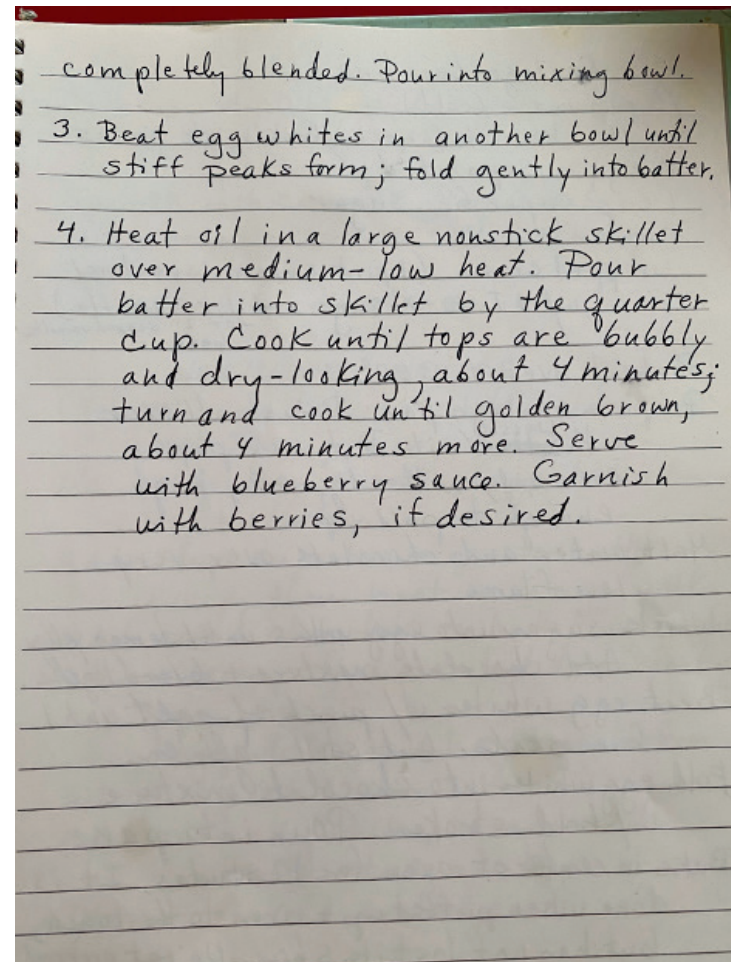 completely blended. Pour into mixing bowl.
3. Beat egg whites in another bowl until
stiff peaks form; fold gently into batter.
4. Heat oil in a large nonstick skillet
over medium-low heat. Pour
batter into skillet by the quarter
cup. Cook until tops are bubbly
and dry-looking, about 4 minutes;
turn and cook until golden brown,
about 4 minutes more. Serve
with blueberry sauce. Garnish
with berries, if desired.